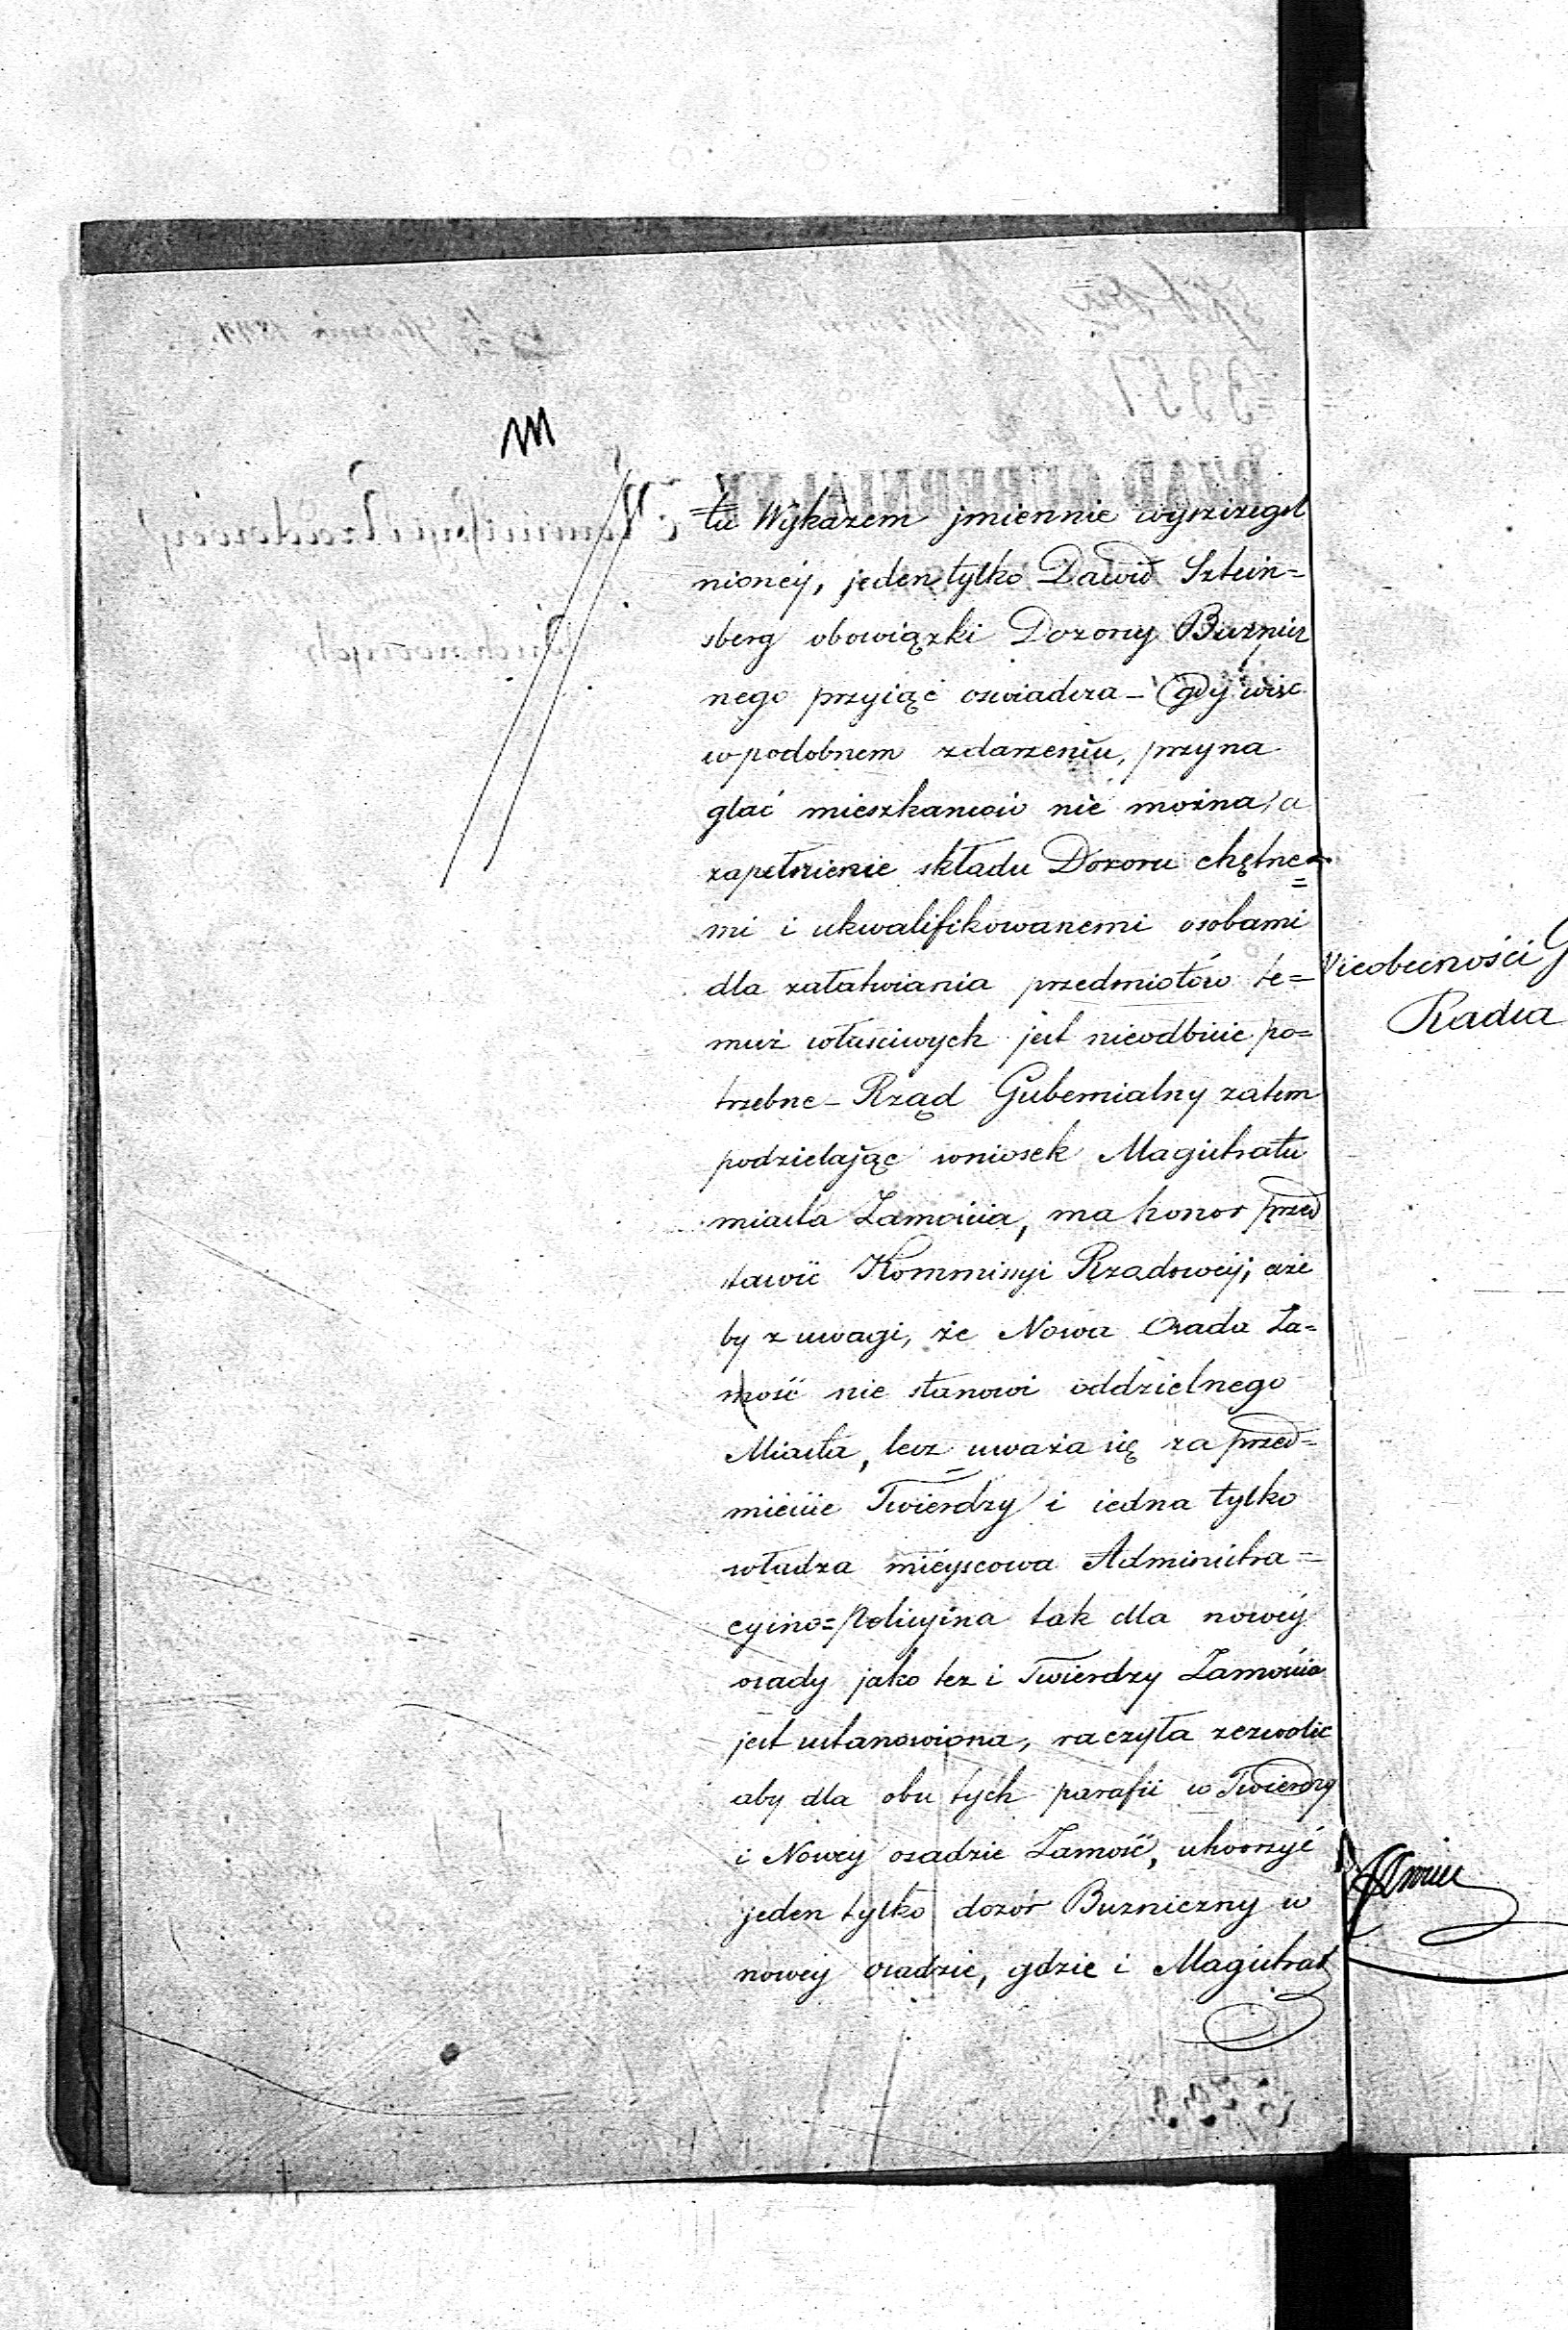 tu Wykazem jmiennie wyszczegól
nioney, jeden tylko Dawid Sztein=
sberg obowiązki Dozory Buznicz
nego przyiąć oswiadcza – gdy więc
w podobnem zdarzeniu, przyna
glać mieszkanców nie można, a
zapełnienie składu Dozoru chętne=
mi i ukwalifikowanemi osobami
dla załatwiania przedmiotów te=
muż własciwych jest nieodbicie po=
trzebne – Rząd Gubernialny zatem
podzielając wniosek Magistratu
miasta Zamoscia, ma honor przed
stawić Kommissyi Rządowey, aże
by z uwagi, że Nowa Osada Za=
mość nie stanowi oddzielnego
Miasta, lecz uważa się za przed=
mieście Twierdzy i iedna tylko
władza mieyscowa Administra=
cyino=Policyina tak dla nowey
osady jako tez i Twierdzy Zamościa
jest ustanowiona, raczyła zezwolic
aby dla obu tych parafii w Twierdzy
i Nowey osadzie Zamość, utworzyć
jeden tylko dozór Buzniczny w
nowey osadzie, gdzie i Magistrat
Nieobecności G
Radca
3357
RZĄD GUBERNIALNY
Kommissyi Rządowéy
Duchownych